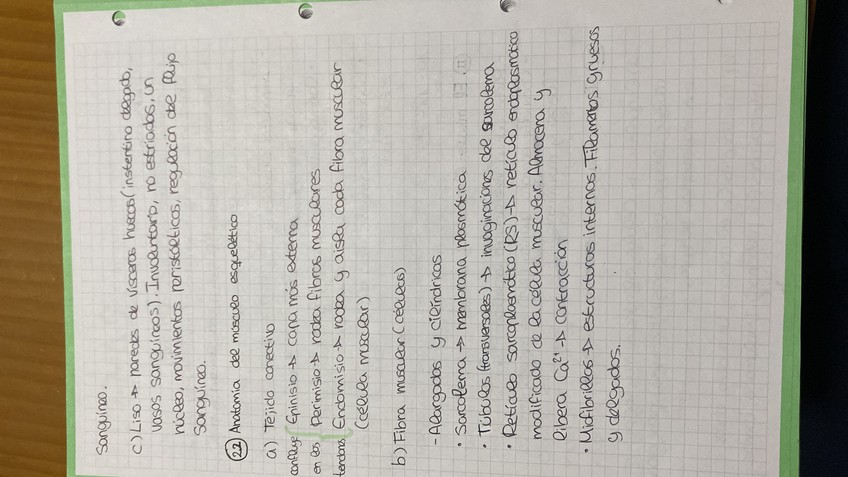 sanguíneo.
c) Liso → paredes de vísceras huecas (instentino delgado,
vasos sanguíneos). Involuntario, no estriados, un
núcleo, movimientos peristálticos, regulación del flujo
sanguíneo.
2.2 Anatomía del músculo esquelético
a) Tejido conectivo
confluye Epinisio → capa más externa
en los Perimisio → rodea fibras musculares
tendones Endomisio → rodea y aisla cada fibra muscular
(célula muscular)
b) Fibra muscular (células)
- Alargados y cilíndricos
• Sarcolema → membrana plasmática
• Túbulos (transversales) → invaginaciones del sarcolema
• Retículo sarcoplasmático (RS) → retículo endoplasmático
modificado de la célula muscular. Almacena y
libera Ca²⁺ → contracción
• Miofibrillas → estructuras internas. Filamentos gruesos
y delgados.